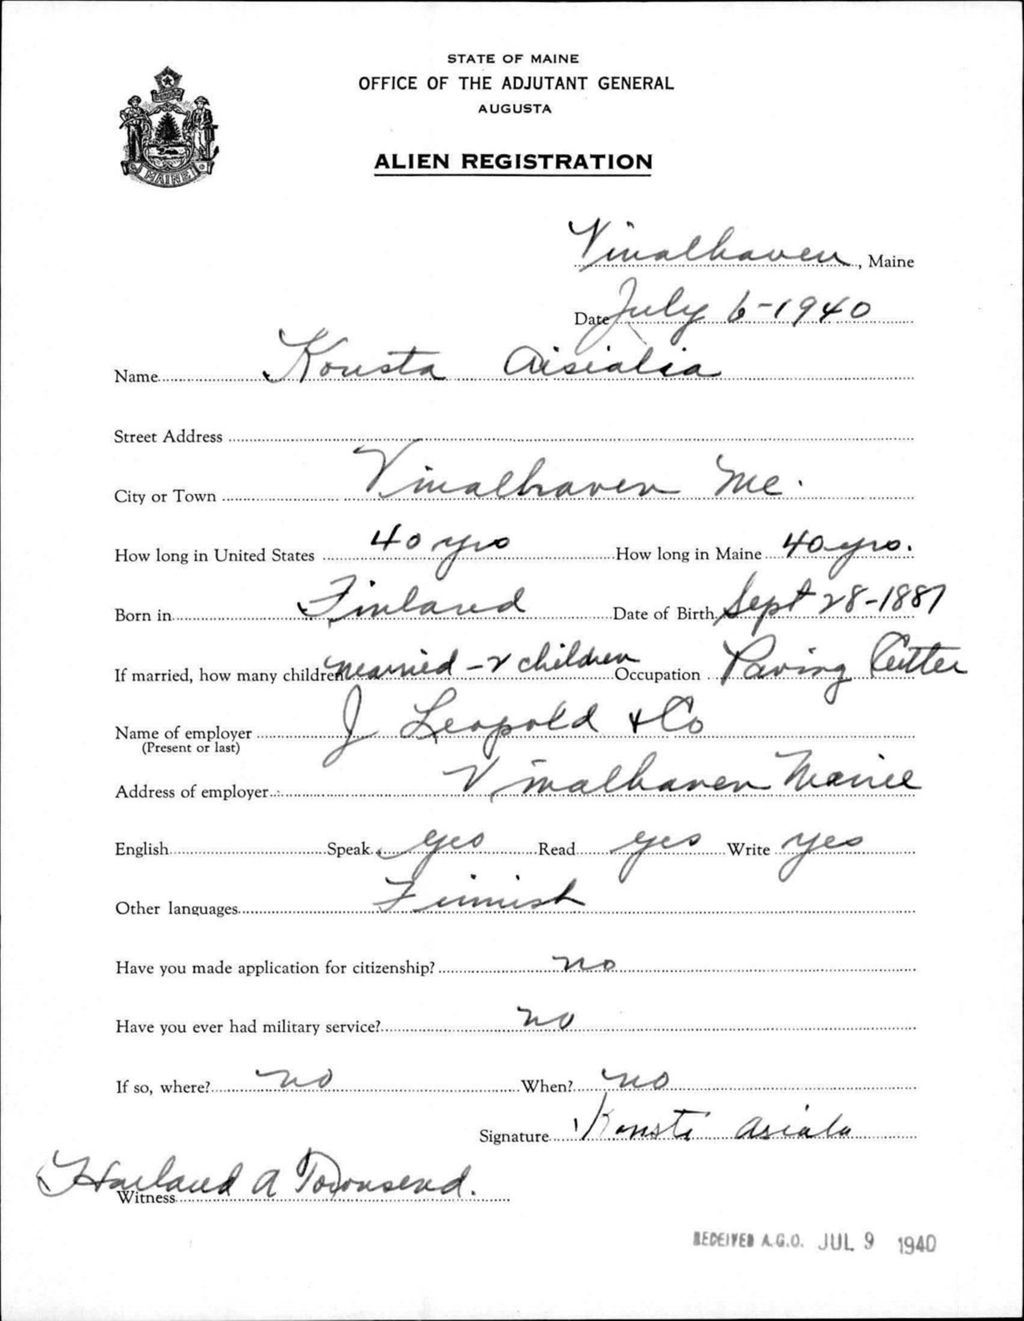 STATE OF MAINE
OFFICE OF THE ADJUTANT GENERAL
AUGUSTA
ALIEN REGISTRATION
MAINE
Vinalhaven, Maine
Date July 6-1940
Name Kousta Aisialia
Street Address
City or Town Vinalhaven Me.
How long in United States 40 yrs How long in Maine 40 yrs.
Born in Finland Date of Birth Sept 28-1881
If married, how many children Married - 2 children Occupation Paving Cutter
Name of employer J Leopold & Co
(Present or last)
Address of employer Vinalhaven Maine
English Speak yes Read yes Write yes
Other languages Finnish
Have you made application for citizenship? no
Have you ever had military service? no
If so, where? no When? no
Signature Konsti Asiala
Harland A Townsend.
Witness
RECEIVED A.G.O. JUL 9 1940